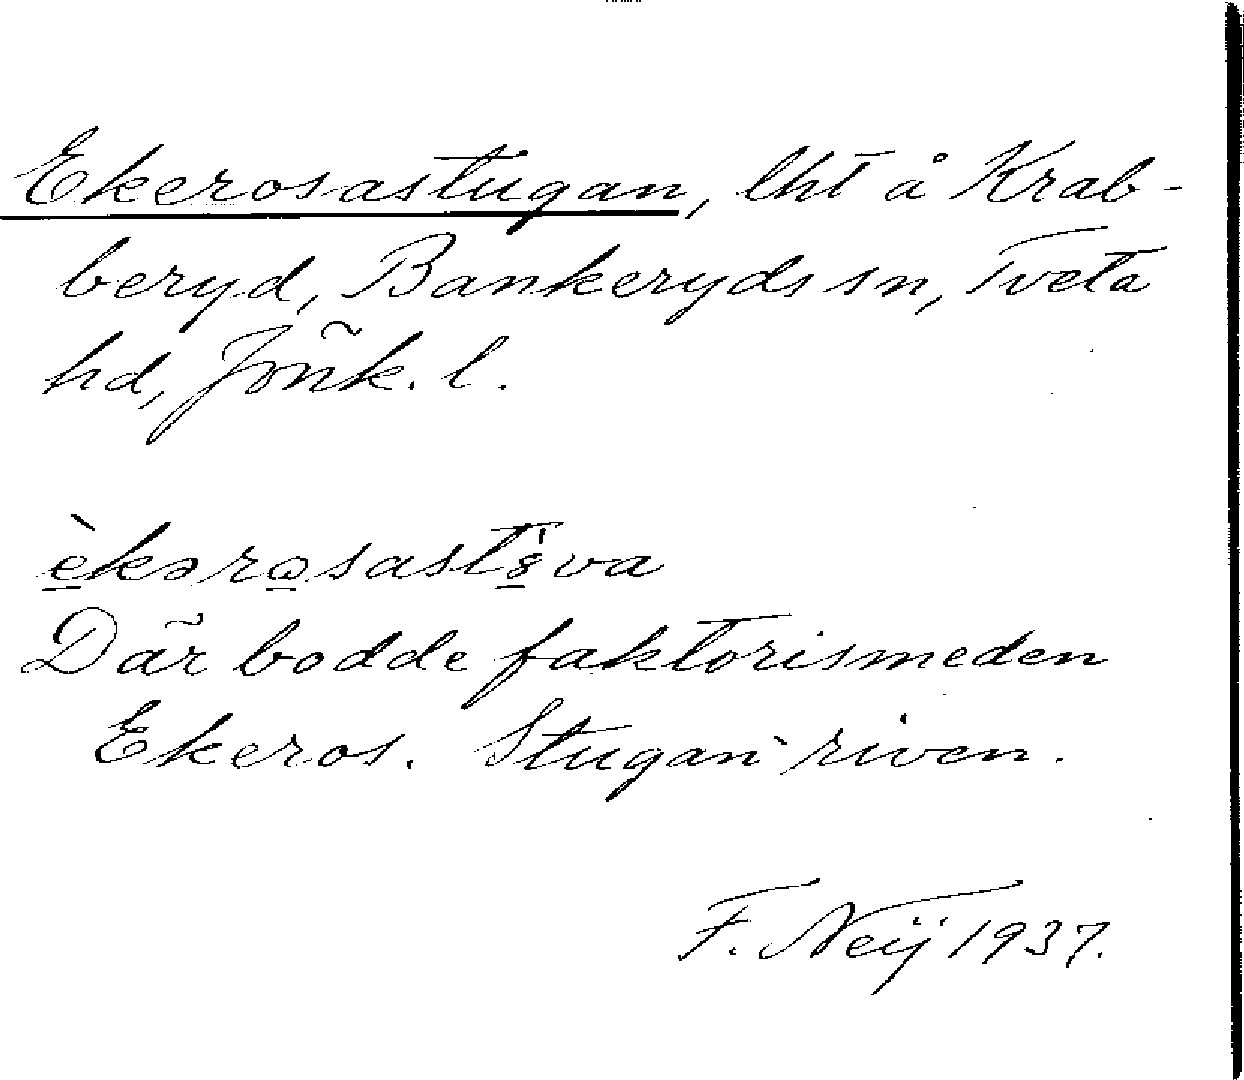 Ekerosastugan, lht å Krab-
beryd, Bankeryds sn, Tveta
hd, Jönk. l.
èkərosast
Där bodde faktorismeden
Ekeros. Stugan riven.
F. Neij 1937.